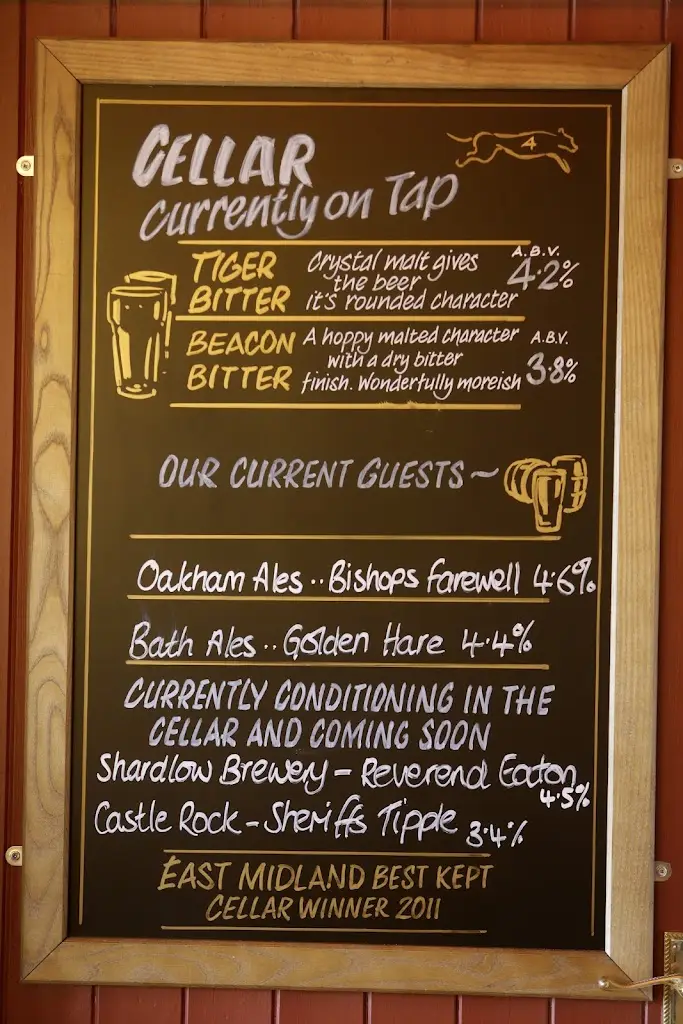 CELLAR
4
currently on Tap
TIGER BITTER
Crystal malt gives
the beer
it's rounded character
A.B.V.
4.2%
BEACON BITTER
A hoppy malted character
with a dry bitter
finish. Wonderfully moreish
A.B.V.
3.8%
OUR CURRENT GUESTS ~
Oakham Ales .. Bishops Farewell 4.6%
Bath Ales .. Golden Hare 4.4%
CURRENTLY CONDITIONING IN THE
CELLAR AND COMING SOON
Shardlow Brewery - Reverend Eaton
4.5%
Castle Rock - Sheriffs Tipple 3.4%
EAST MIDLAND BEST KEPT
CELLAR WINNER 2011